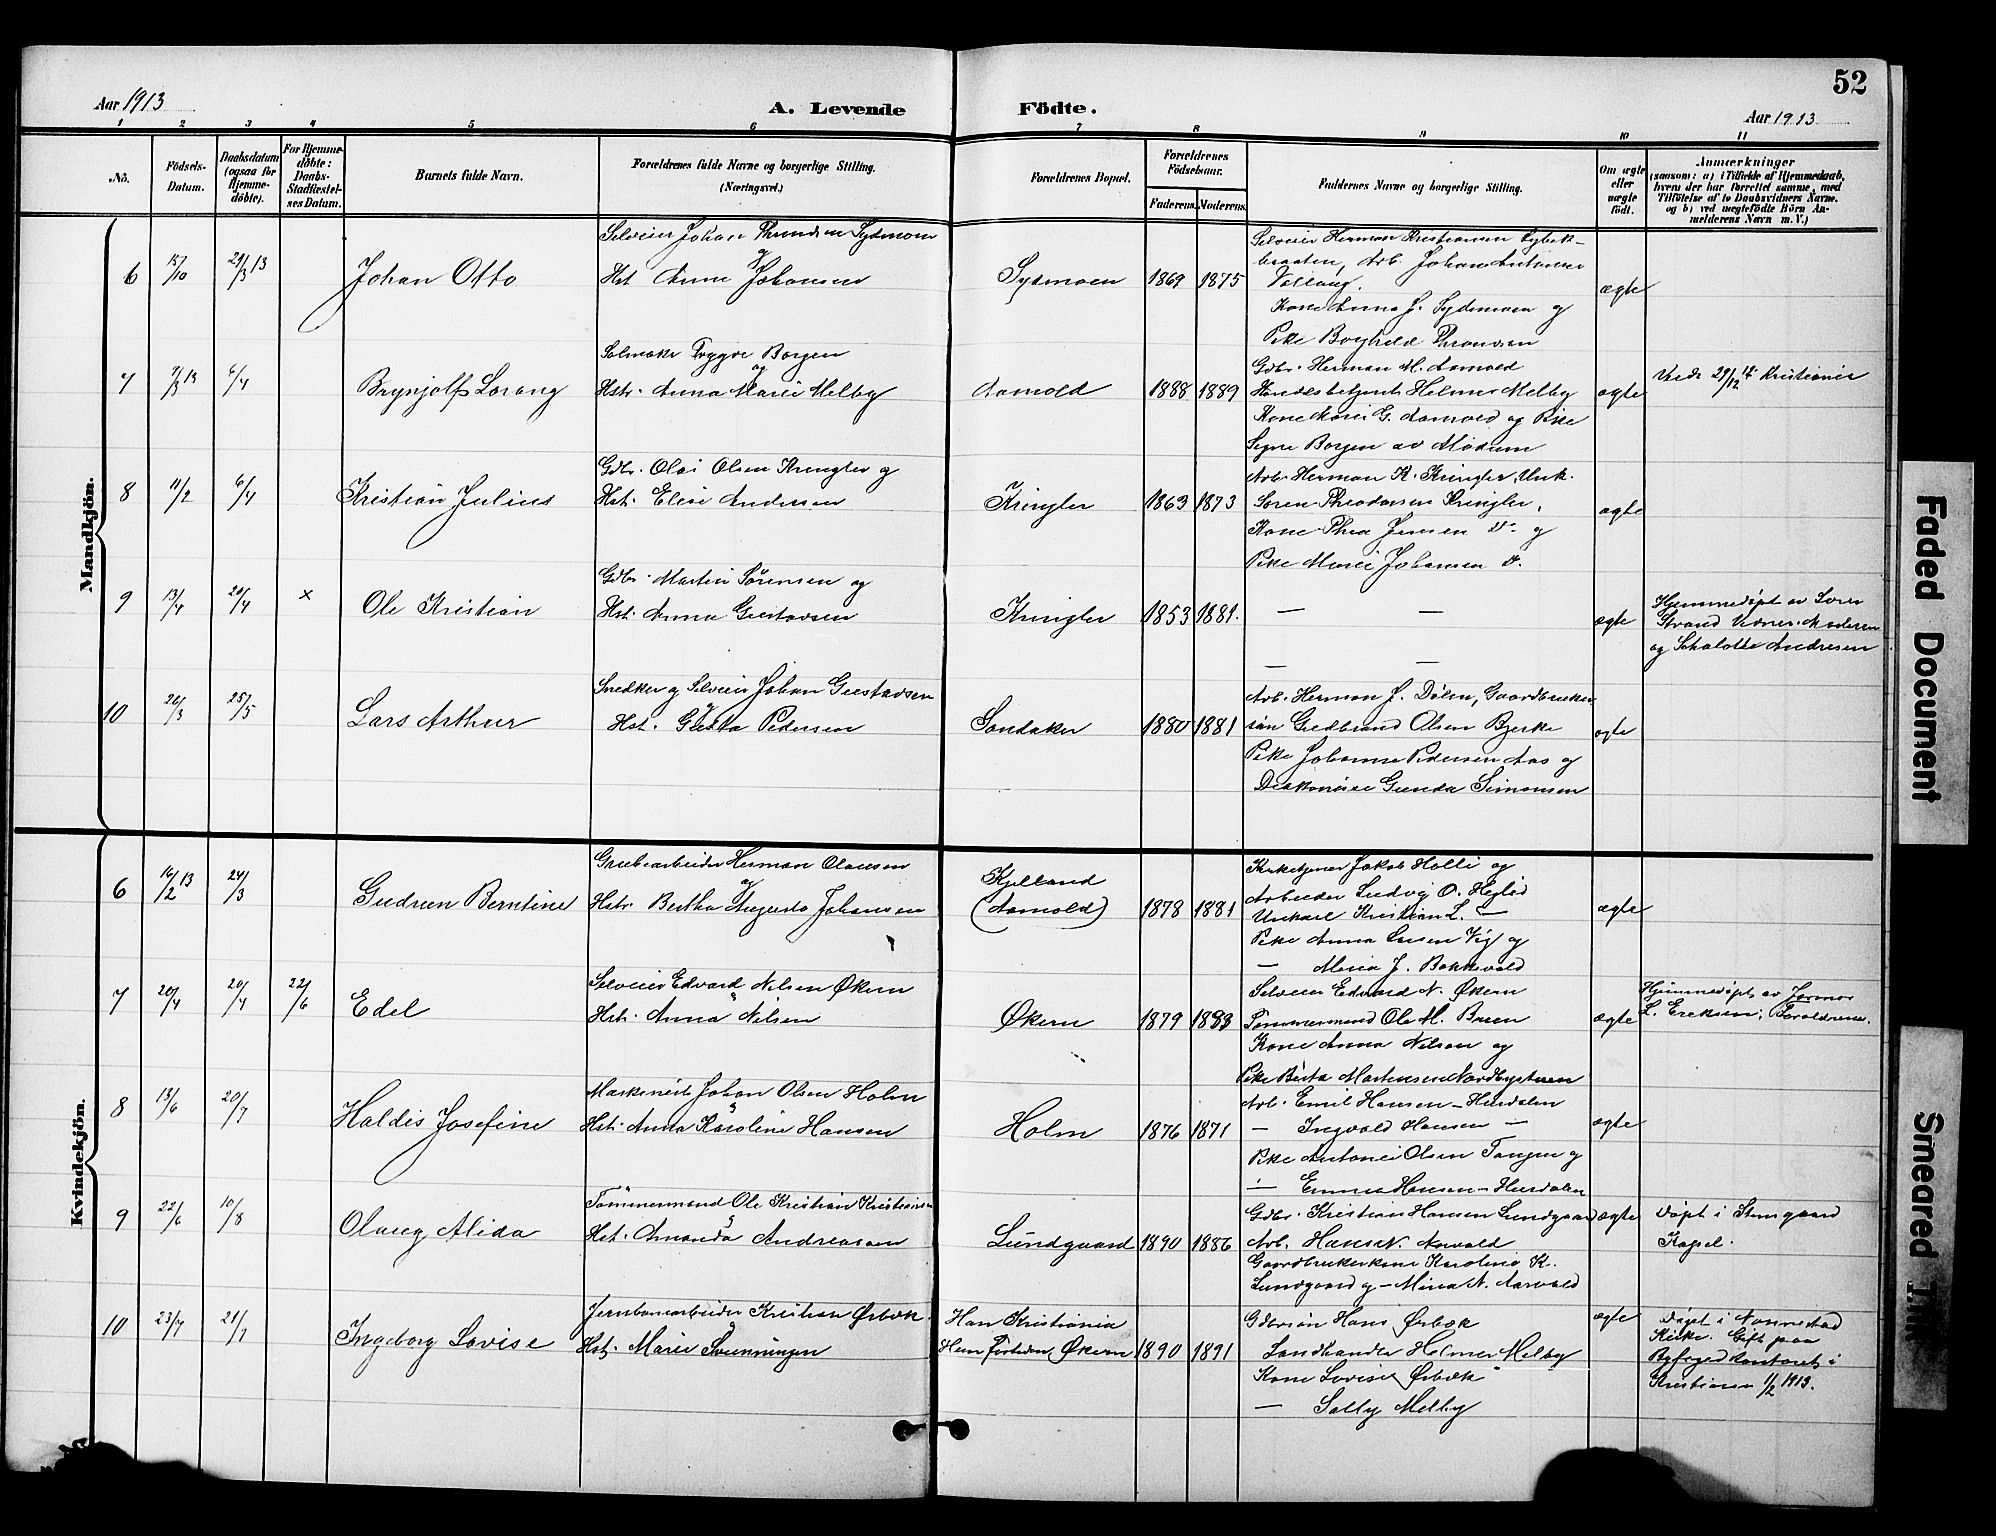 52
Aar 1913
A. Levende Födte.
Aar 1913
1 2 3 4 5 6 7 8 9 10 11
No.
Födsels-Datum.
Daabsdatum (ogsaa for Hjemme-döbte).
For Hjemme-döbte: Daabs-Stadfæstel-ses Datum.
Barnets fulde Navn.
Forældrenes fulde Navne og borgerlige Stilling. (Næringsvei.)
Forældrenes Bopæl.
Forældrenes Födselsaar.
Faderens. Moderens.
Faddernes Navne og borgerlige Stilling.
Om ægte eller uægte födt.
Anmærkninger
(saasom: a) i Tilfælde af Hjemmedaab,
hvem der har forrettet samme, med
Tilföielse af to Daabsvidners Navne.
og b) ved uægtefödte Börn An-
melderens Navn m. V.)
Mandkjön.
6 15/10 24/3 13 Johan Otto
Selveier Johan Thrundsen Sydmoen
og
Hst. Anne Johansen
Sydmoen 1869 1875
Selveier Herman Kristiansen
braaten, Arb. Johan Antonsen
Kone Anna J. Sydmoen og
Pike Borghild Throndsen
ægte
7 7/3 13 6/4 Brynjolf Lorang
Salmaker Trygve Borgen
og
Hstr. Anna Marie Melby
Aamold 1888 1889
Gdbr. Herman M. Aamold
Handelsbetjent Helmer Melby
Kone Marie G. Aamold og Pike
Signe Borgen av Modum
ægte
29/12 Kristiania
8 11/2 6/4 Kristian Julius
Gdbr. Olai Olsen Kringler og
Hst. Elise Andersen
Kringler 1863 1873
Arb. Herman K. Kringler, Unk.
Søren Theodorsen Kringler,
Kone Thea Jensen do og
Pike Marie Johansen do.
ægte
9 13/4 20/4 x Ole Kristian
Gdbr. Martin Sørensen og
Hst. Anna Gustavsen
Kringler 1853 1881.
— —
— —
ægte
Hjemmedøpt av Soren
Strand Vidner: Moderen
og Schalotte Andresen
10 26/3 25/5 Lars Arthur
Snedker og Selveier Johan Gustavsen
og
Hst. Gusta Pedersen
Sandaker 1880 1881
Arb. Herman J. Dølen, Gaardbruker
søn Gudbrand Olsen Bjerke
Pike Johanne Pedersen Aas og
Diakonisse Gunda Simonsen
ægte
Kvindekjön.
6 16/2 13 24/3 Gudrun Berntine
Grubearbeider Herman Olausen
og
Hstr. Bertha Augusta Johansen
Kjelland
(Aamold) 1878 1881
Kirketjener Jakob Holli og
Arbeider Ludvig O.
Unkarl Kristian L. —
Pike Anna Larsen Vig og
— Maria J. Bakkevold
ægte
7 20/4 20/4 22/6 Edel
Selveier Edvard Nilsen Økern
Hst. Anna Nilsen
Økern 1879 1883
Selveier Edvard N. Økern
Tømmermand Ole M. Bruen
Kone Anna Nilsen og
Pike Berta Martinsen Nordbysteren
ægte
Hjemmedøpt av Jormor
L. Eriksen; Forældrene.
8 13/6 20/7 Haldis Josefine
Maskinist Johan Olsen Holm
Hst. Anna Karoline Hansen
Holm 1876 1871
Arb. Emil Hansen – Hurdalen
— Ingvald Hansen —
Pike Antonie Olsen Tangen og
— Emma Hansen – Hurdalen
ægte
9 22/6 10/8 Olaug Alida
Tømmermand Ole Kristian Kristiansen
Hst. Amanda Andreassen
Lundgaard 1890 1886
Gdbr. Kristian Hansen Lundgaard
Arb. Hans N. Aarvold
Gaardbrukerkone Karoline K.
Lundgaard og – Mina N. Aarvold
ægte
Døpt i Stensgaard
Kapel.
10 23/4 21/7 Ingeborg Lovise
Jernbanearbeider Kristian Ørbæk.
Hst. Marie Svenningen
Han Kristiania
Hun fortiden Økern 1890 1891
Gdbrsøn Hans Ørbæk
Landhandler Helmer Melby
Kone Lovise Ørbæk
— Sally Melby
ægte
Døpt i Nannestad
Kirke. Gift paa
Byfogedkontoret i
Kristiania 11/2 1913.
Faded Document
Smeared Ink